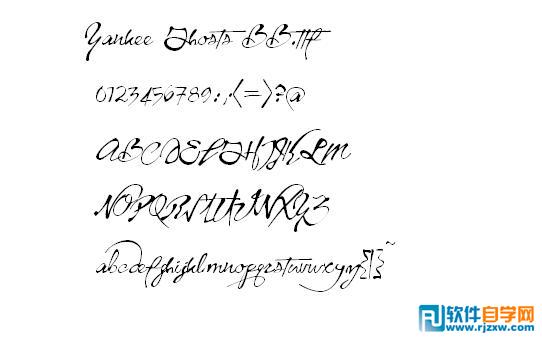 Yankee Ghosts BB.ttf
0123456789:;<=>?@
ABCDEFGHIJKLM
NOPQRSTUVWXYZ
abcdefghijklmnopqrstuvwxyz{|}~
软件自学网
www.rjzxw.com